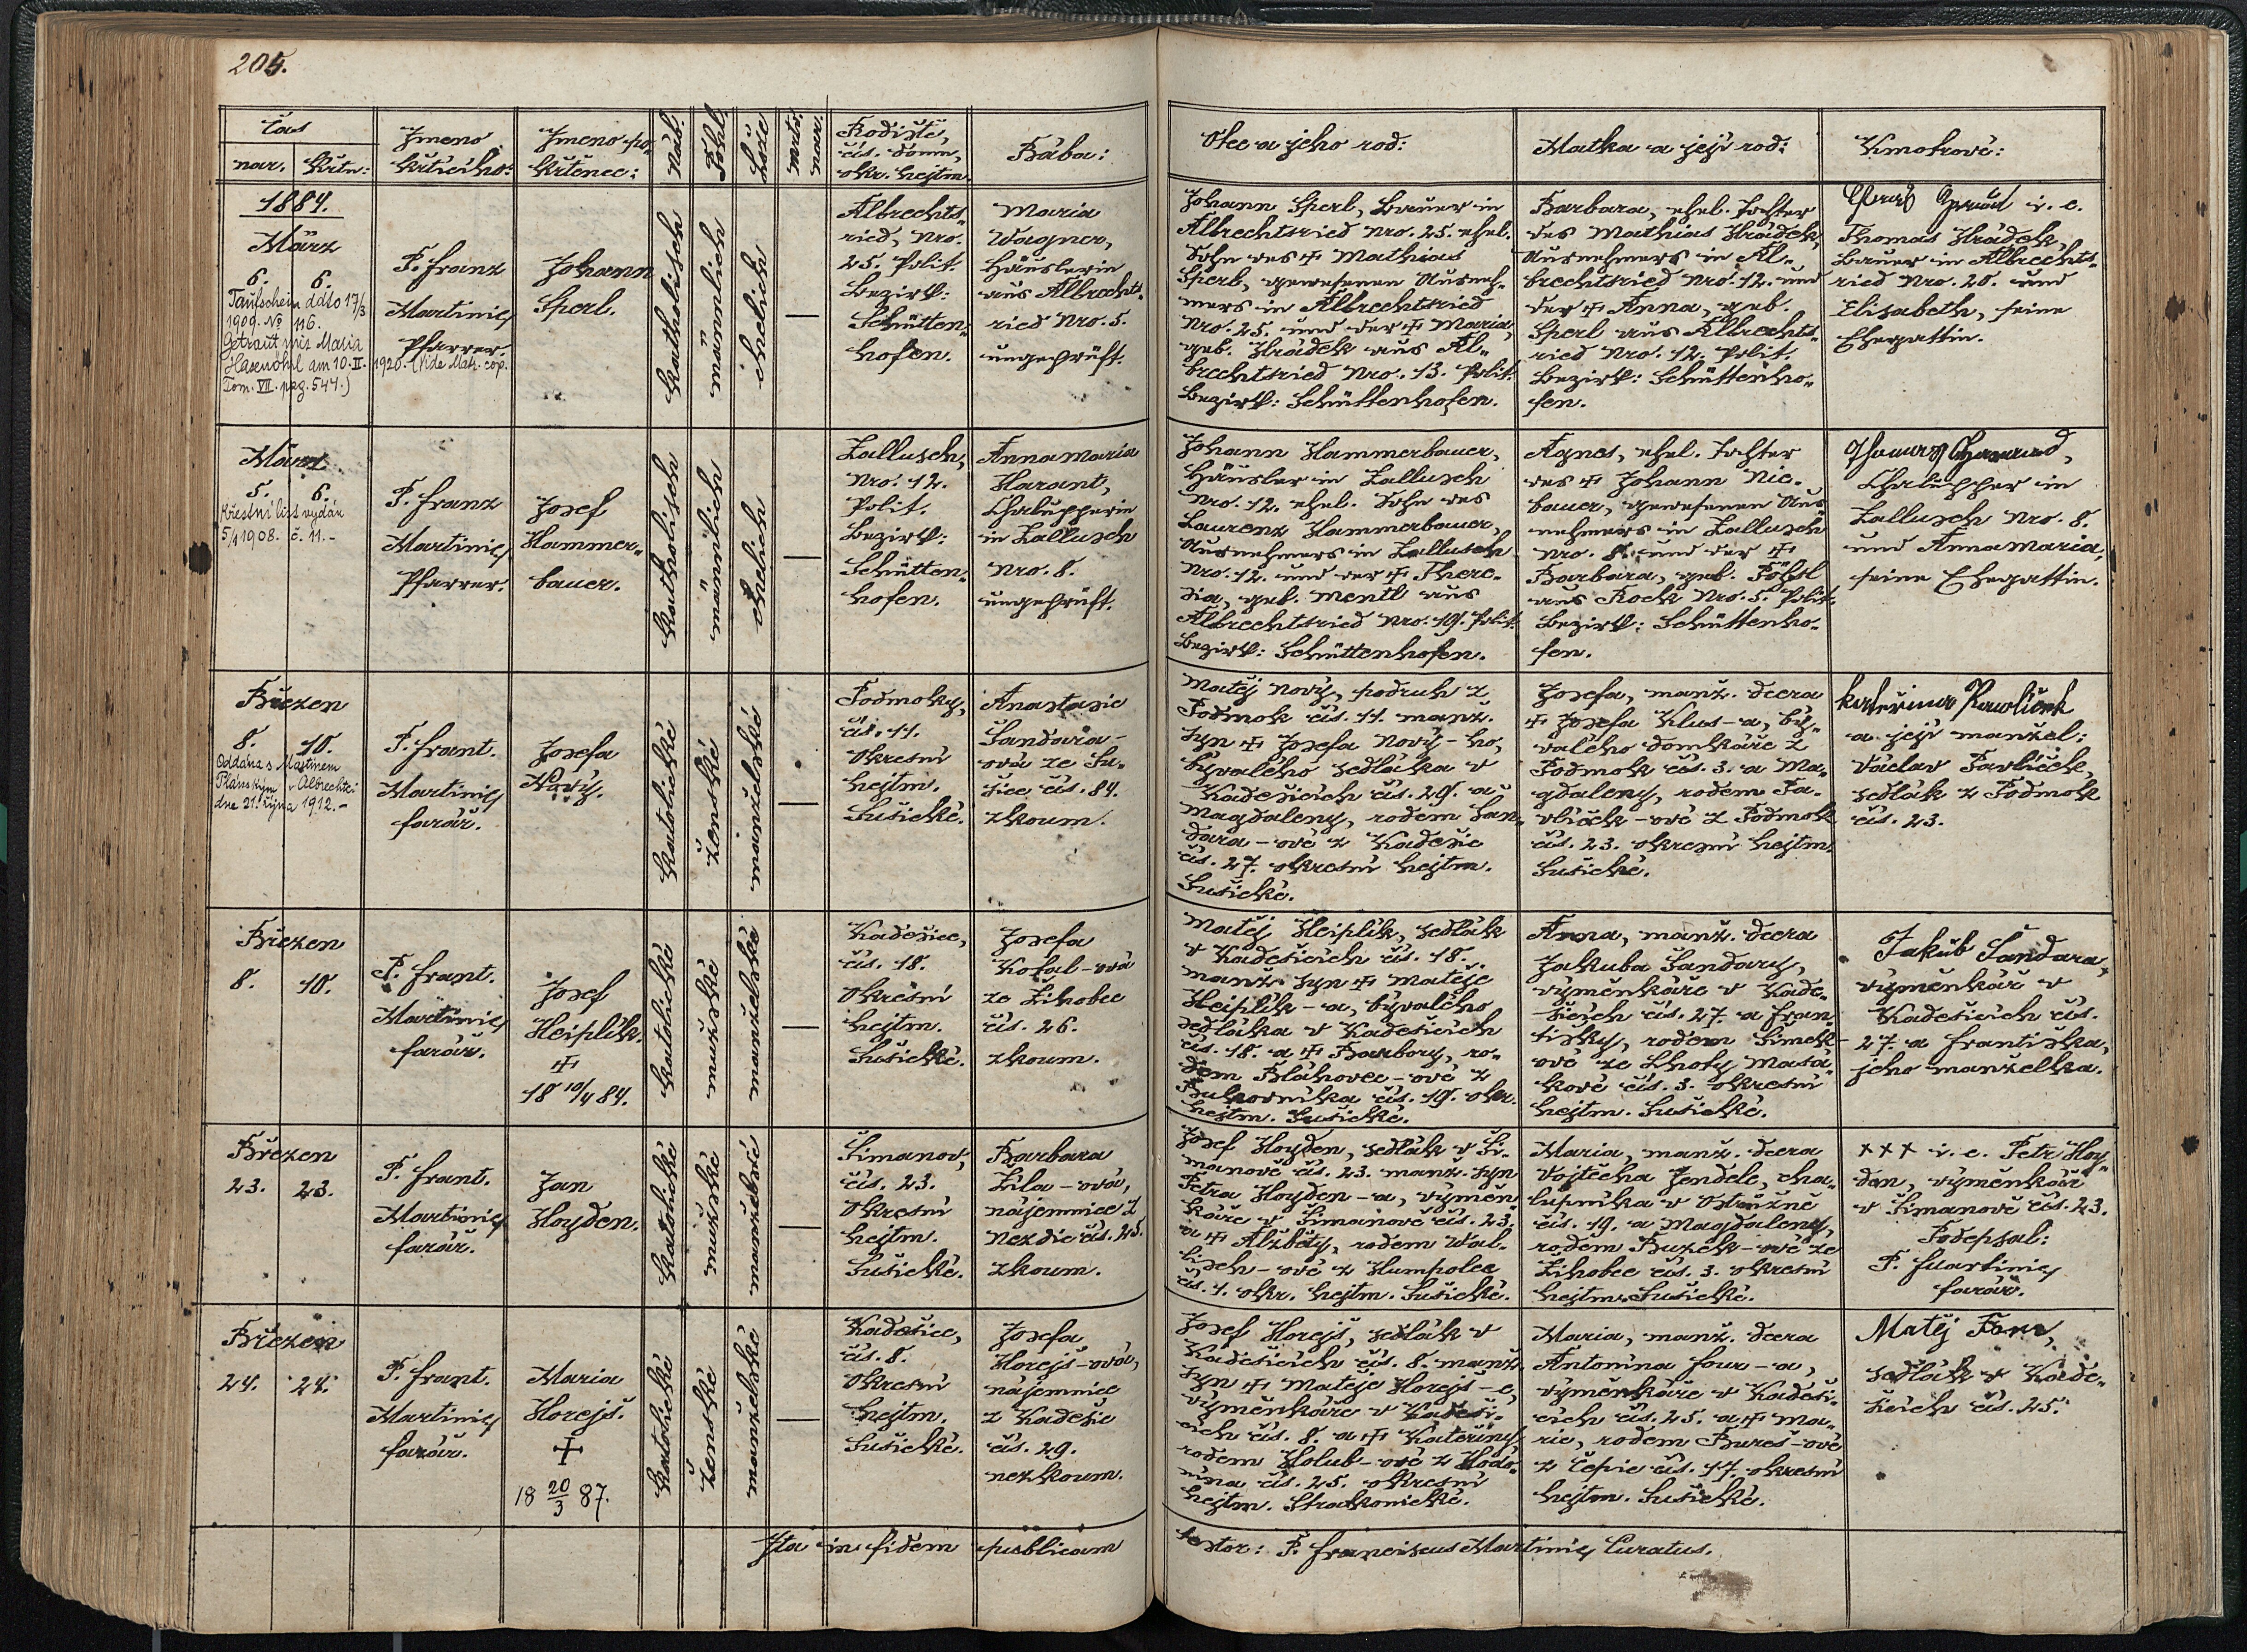 205.
Čas
nar. Křtu:
Jméno
křtícího:
Jméno po-
křtěnce:
Náb.
Pohl.
Lože
mrtv.
nar.
Rodiště,
čís. domu,
okr. hejtm.
Bába:
Otec a jeho rod:
Matka a její rod:
Kmotrové:
1884.
März
6. 6.
Taufschein ddto 17/3
1909. No 116.
Getraut mit Maria
Hasenöhrl am 10. II. 1920. (Vide Matr. cop.
Tom. VII. pag. 547.)
P. Franz
Martinic,
Pfarrer.
Johann
Sperl.
katholisch
männlich
ehelich
—
Albrechts-
ried, Nro.
25. Polit.
Bezirk:
Schütten-
hofen.
Maria
Wagner,
Häuslerin
aus Albrechts-
ried Nro. 5.
ungeprüft.
Johann Sperl, Bauer in
Albrechtsried Nro. 25. ehel.
Sohn des + Mathias
Sperl, gewesenen Ausneh-
mers in Albrechtsried
Nro. 25. und der + Maria,
geb. Hrádek aus Al-
brechtsried Nro. 13. Polit.
Bezirk: Schüttenhofen.
Barbara, ehel. Tochter
des Mathias Hrádek,
Ausnehmers in Al-
brechtsried Nro. 12. und
der + Anna, geb.
Sperl aus Albrechts-
ried Nro. 12. Polit.
Bezirk: Schüttenho-
fen.
i. e.
Thomas Hrádek,
Bauer in Albrechts-
ried Nro. 20. und
Elisabeth, seine
Ehegattin.
März
5. 6.
Křestní list vydán
5/1 1908. č. 11.-
P. Franz
Martinic,
Pfarrer.
Josef
Hammer-
bauer.
katholisch
männlich
ehelich
—
Zallusch,
Nro. 12.
Polit.
Bezirk:
Schütten-
hofen.
Anna Maria
Harant,
Chalupperin
in Zallusch
Nro. 8.
ungeprüft.
Johann Hammerbauer,
Häusler in Zallusch
Nro. 12. ehel. Sohn des
Laurenz Hammerbauer,
Ausnehmers in Zallusch
Nro. 12. und der + There-
sia, geb. Mentl aus
Albrechtsried Nro. 19. Polit.
Bezirk: Schüttenhofen.
Agnes, ehel. Tochter
des + Johann Nie-
bauer, gewesenen Aus-
nehmers in Zallusch
Nro. 8. und der +
Barbara, geb.
aus Rock Nro. 5. Polit.
Bezirk: Schüttenho-
fen.
Thomas
Chalupper in
Zallusch Nro. 8.
und Anna Maria,
seine Ehegattin.
Březen
8. 10.
Oddána s Martinem
Plánským v Albrechtci
dne 21. října 1912.-
P. Frant.
Martinic,
farář.
Josefa
Nový.
katolické
ženské
manželské
—
Podmoky,
čís. 11.
Okresní
hejtm.
Sušické.
Anastasie
Šandara-
ová ze Su-
šice, čís. 84.
zkoum.
Matěj Nový, podruh z
Podmok čís. 11. manž.
syn + Josefa Nový-ho,
bývalého sedláka v
Kadešicích čís. 29. a
Magdaleny, rodem Šan-
dara-ové z Kadešic
čís. 27. okresní hejtm.
Sušické.
Josefa, manž. dcera
+ Josefa Klus-a, bý-
valého domkáře z
Podmok čís. 3. a Ma-
gdaleny, rodem Pa-
vlíček-ové z Podmok
čís. 23. okresní hejtm.
Sušické.
Kateřina Pawlíček
a její manžel:
Václav Pavlíček,
sedlák z Podmok
čís. 23.
Březen
8. 10.
P. Frant.
Martinic,
farář.
Josef
Heiplík.
+
18 10/4 84.
katolické
mužské
manželské
—
Kadešice,
čís. 18.
Okresní
hejtm.
Sušické.
Josefa
Kotal-ová
ze Žihobec
čís. 26.
zkoum.
Matěj Heiplík, sedlák
v Kadešicích čís. 18.
manž. syn + Matěje
Heiplík-a, bývalého
sedláka v Kadešicích
čís. 18. a + Barbory, ro-
dem Bláhovec-ové z
čís. 19. okr.
hejtm. Sušické.
Anna, manž. dcera
Jakuba Šandary,
výměnkáře v Kade-
šicích čís. 27. a Fran-
tišky, rodem Šimek-
ové ze Lhoty Masá-
kové čís. 3. okresní
hejtm. Sušické.
Jakub Šandara,
výměnkář v
Kadešicích čís.
27. a Františka,
jeho manželka.
Březen
23. 23.
P. Frant.
Martinic,
farář.
Jan
Hoyden.
katolické
mužské
manželské
—
Šimanov,
čís. 23.
Okresní
hejtm.
Sušické.
Barbara
Žíla-ová,
nájemnice z
Nezdic čís. 45.
zkoum.
Josef Hoyden, sedlák v Ši-
manově čís. 23. manž. syn
Petra Hoyden-a, výměn-
káře v Šimanově čís. 23.
a + Alžběty, rodem Wal-
lisch-ové z Humpolce
čís. 1. okr. hejtm. Sušické.
Maria, manž. dcera
Vojtěcha Jendele, cha-
lupníka v Ostružně
čís. 19. a Magdaleny,
rodem Buzek-ové ze
Žihobec čís. 3. okresní
hejtm. Sušické.
+++ i. e. Petr Hoy-
den, výměnkář
v Šimanově čís. 23.
Podepsal:
P. Martinic,
farář.
Březen
24. 24.
P. Frant.
Martinic,
farář.
Maria
Horejš.
+
18 20/3 87.
katolické
ženské
manželské
—
Kadešice,
čís. 8.
Okresní
hejtm.
Sušické.
Josefa
Horejš-ová,
nájemnice
z Kadešic
čís. 29.
nezkoum.
Josef Horejš, sedlák v
Kadešicích čís. 8. manž.
syn + Matěje Horejš-e,
výměnkáře v Kadeši-
cích čís. 8. a + Kateřiny,
rodem Holub-ové z Hodo-
nína čís. 25. okresní
hejtm. Strakonické.
Maria, manž. dcera
Antonína Four-a,
výměnkáře v Kadeši-
cích čís. 25. a + Ma-
rie, rodem Bureš-ové
z Čepic čís. 17. okresní
hejtm. Sušické.
Matěj
sedlák v Kade-
šicích čís. 25.
Ita in fidem publicam testor: P. Franciscus Martinic, Curatus.